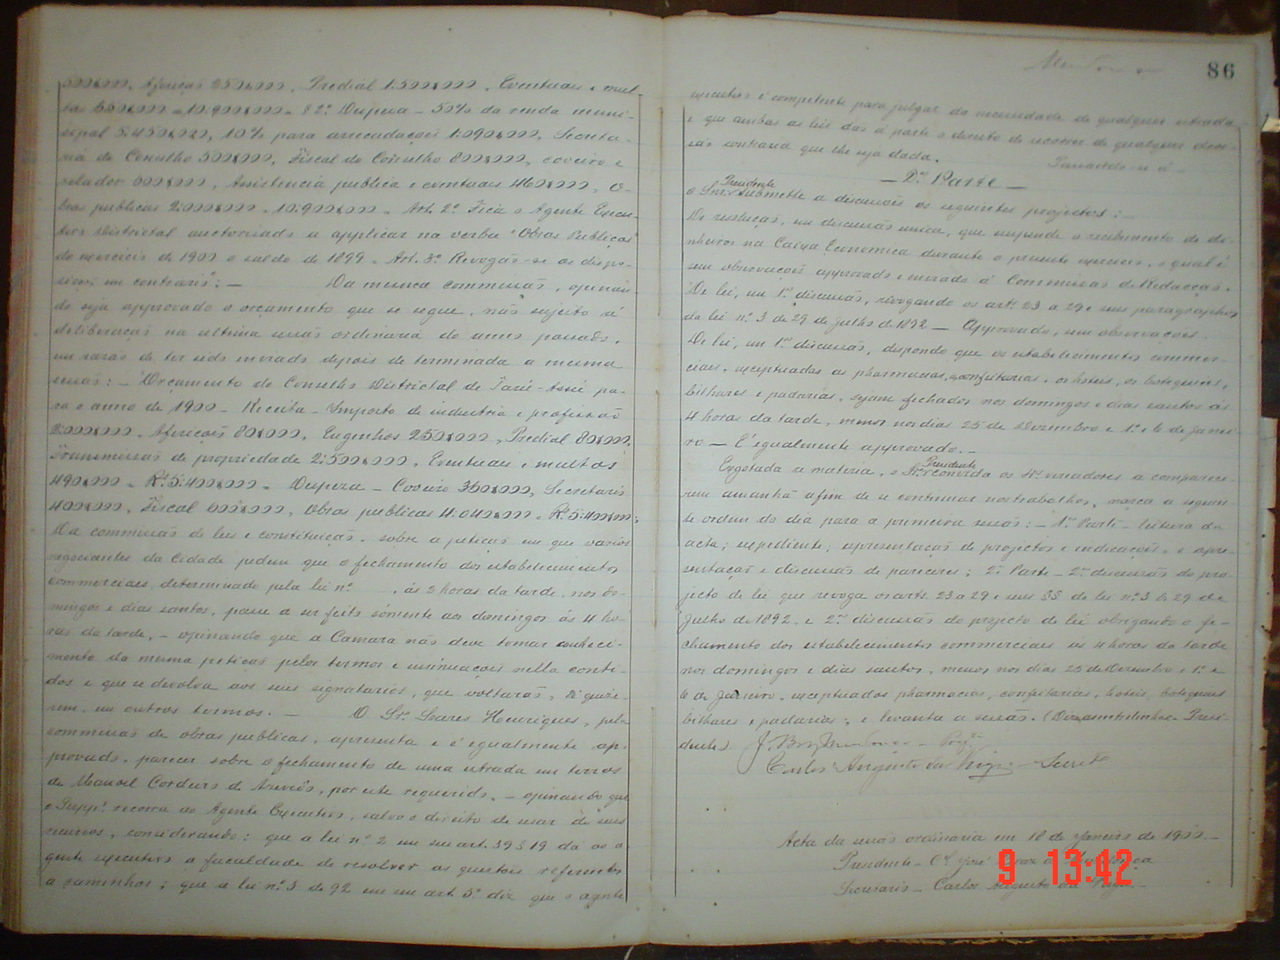 500$000, Aferição 250$000, Predial 1:500$000, Eventuaes e mul-
tas 650$000 = 10:900$000 = § 2º Despeza - 50% da renda muni-
cipal 5:450$000, 10% para arrecadações 1:090$000, Secreta-
ria do Conselho 500$000, Fiscal do Conselho 800$000, coveiro e
zelador 600$000, Assistencia publica e eventuaes 460$000, O-
bras publicas 2:000$000 = 10:900$000 = Art. 2º Fica o Agente Execu-
tivo Districtal auctorisado a applicar na verba "Obras Publicas"
do exercicio de 1900 o saldo de 1899. Art. 3º Revogão-se as dispo-
sições em contrario: — Da mesma commissão, opinan-
do seja approvado o orçamento que se segue, não sujeito á
deliberação na ultima sessão ordinaria do anno passado,
em razão de ter sido enviado depois de terminada a mesma
sessão: — Orçamento do Conselho Districtal de pa-
ra o anno de 1900 - Receita - Imposto de industria e profissão
2:000$000, Aferições 80$000, Engenhos 250$000, Predial 80$000,
Transmissão de propriedade 2:500$000, Eventuaes e multas
490$000 = Rs. 5:400$000 = Despeza - Coveiro 360$000, Secretario
400$000, Fiscal 600$000, Obras publicas 4:040$000 = Rs. 5:400$000;
Da commissão de leis e constituição, sobre a petição em que varios
negociantes da Cidade pedem que o fechamento dos estabelecimentos
commerciaes, determinado pela lei nº , ás 2 horas da tarde, nos do-
mingos e dias santos, passe a ser feito sómente aos domingos ás 4 ho-
ras da tarde, - opinando que a Camara não deve tomar conheci-
mento da mesma petição pelos termos e insinuações nella conti-
dos e que se devolva aos seus signatarios, que voltarão, si quize-
rem, em outros termos. — O Sr. Soares Henriques, pela
commissão de obras publicas, apresenta e é egualmente ap-
provado, parecer sobre o fechamento de uma estrada em terras
de Manoel Cordeiro de Azevedo, por este requerido, - opinando que
o Suppe. recorra ao Agente Executivo, salvo o direito de usar de seus
recursos, considerando: que a lei nº 2 em seu art. 39 § 19 dá ao a-
gente executivo a faculdade de resolver as questões referentes
a caminhos; que a lei nº 3 de 92 em seu art. 5º diz que o agente
86
executivo é competente para julgar da necessidade de qualquer estrada
e que ambas as leis dão á parte o direito de recorrer de qualquer deci-
são contraria que lhe seja dada. Passando-se á -
— 2ª Parte —
Presidente
o Snr. submette a discussão os seguintes projectos: -
De resolução, em discussão unica, que suspende o recebimento de di-
nheiros na Caixa Economica durante o presente exercicio, o qual é
sem observações approvado e enviado á Commissão de Redacção.
De lei, em 1ª discussão, revogando os arts. 23 a 29 e seus paragraphos
da lei nº 3 de 29 de Julho de 1892 — Approvado, sem observações.
De lei, em 1ª discussão, dispondo que os estabelecimentos commer-
ciaes, exceptuadas as pharmacias, confeitarias, os hoteis, os botequins,
bilhares e padarias, sejam fechados nos domingos e dias santos ás
4 horas da tarde, menos nos dias 25 de Dezembro e 1º e 6 de Janei-
ro — É egualmente approvado. -
Presidente
Exgotada a materia, o Sr. convida os Srs. vereadores a comparece-
rem amanhã afim de se continuar nos trabalhos, marca a seguin-
te ordem do dia para a primeira sessão: - 1ª Parte - leitura da
acta; expediente; apresentação de projectos e indicações, e apre-
sentação e discussão de pareceres; 2ª Parte - 2ª discussão do pro-
jecto de lei que revoga os arts. 23 a 29 e seus §§ da lei nº 3 de 29 de
Julho de 1892 e 2ª discussão do projecto de lei obrigando o fe-
chamento dos estabelecimentos commerciaes ás 4 horas da tarde
nos domingos e dias santos, menos nos dias 25 de Dezembro e 1º e
6 de Janeiro, exceptuados pharmacias, confeitarias, hoteis, botequins
bilhares e padarias; e levanta a sessão. (Diz a entrelinha: Presi-
dente)
Carlos Augusto - Secretº
Acta da sessão ordinaria em 18 de Janeiro de 1900 -
Presidente - Cel. José
Secretario - Carlos Augusto
9 13:42